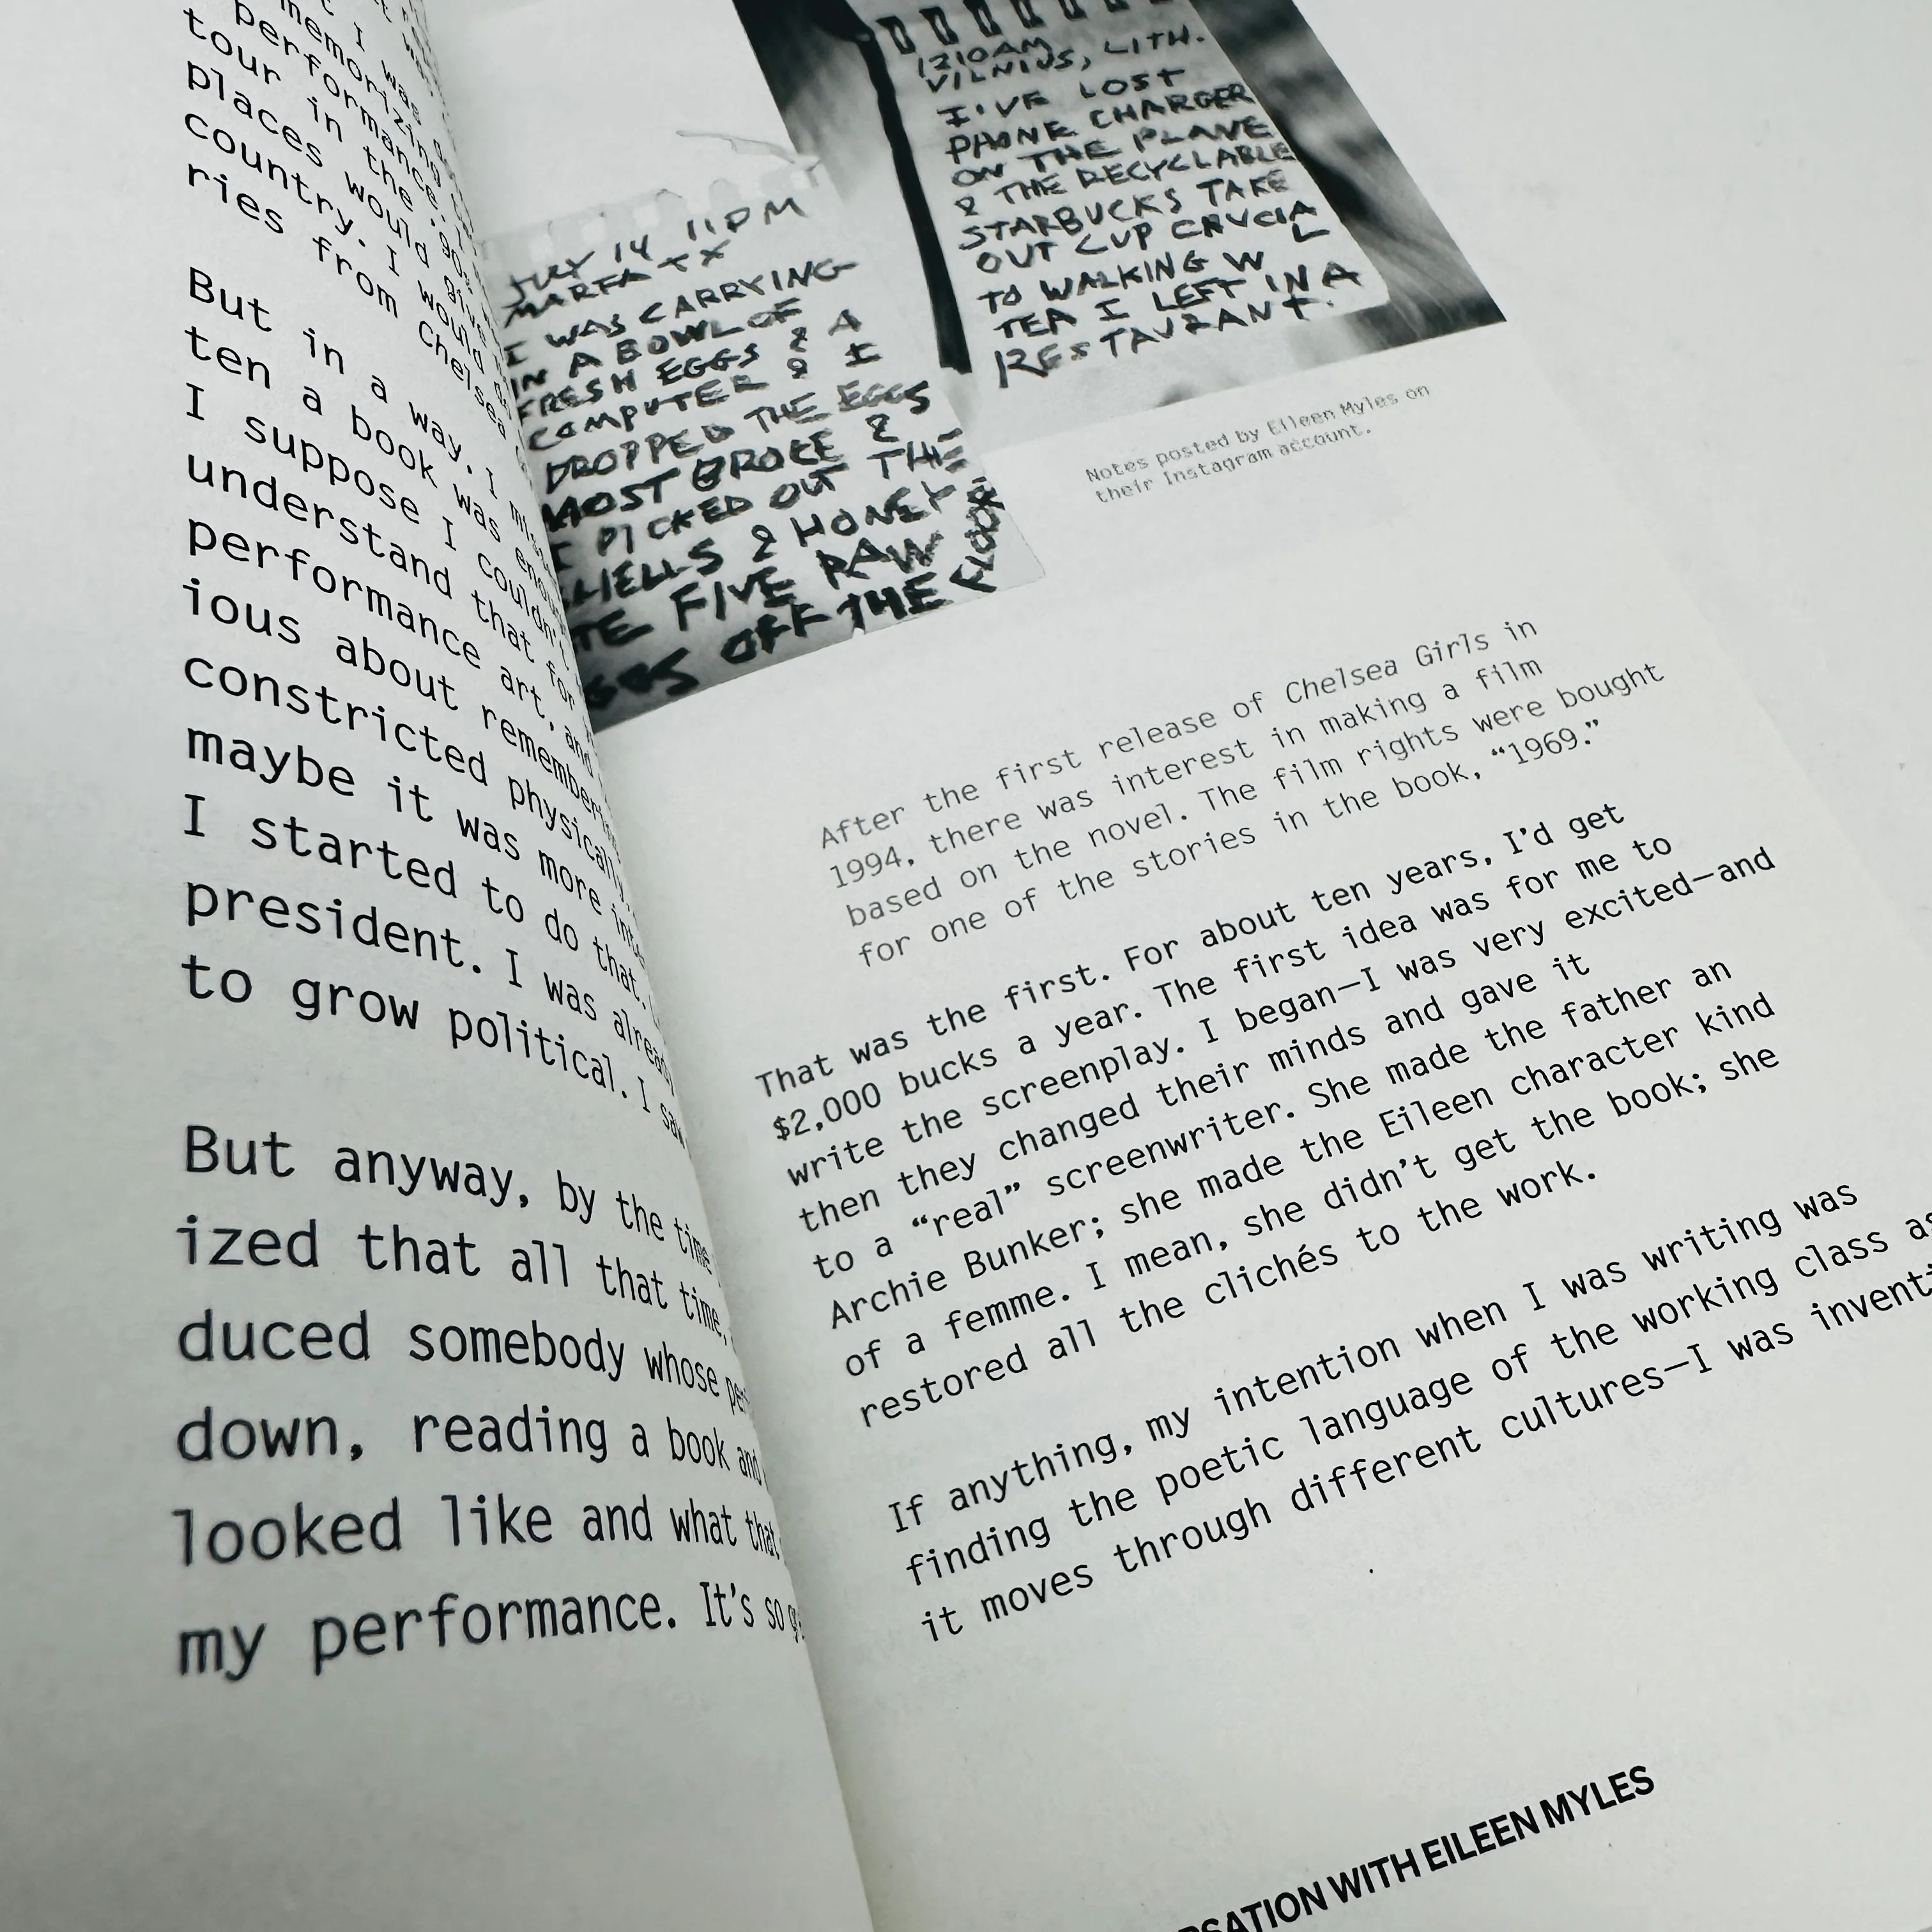 t I was
memorizing
performance.
tour in the '90s
places would give
country. I would
ries from Chelsea
But in a way, I
ten a book was
I suppose I couldn't
understand that for
performance art, and
ious about
constricted physically,
maybe it was more
I started to do that.
president. I was already
to grow political. I
But anyway, by the time
ized that all that time,
duced somebody whose
down, reading a book and
looked like and what that
my performance. It's so
JULY 14 11PM
MARFA TX
I WAS CARRYING
IN A BOWL OF
FRESH EGGS & A
COMPUTER & I
DROPPED THE EGGS
MOST BROKE &
I PICKED OUT THE
& HONEY
FIVE RAW
OFF THE
FLOOR
1210AM
VILNIUS, LITH.
I'VE LOST
PHONE CHARGER
ON THE PLANE
& THE RECYCLABLE
STARBUCKS TAKE
OUT CUP CRUCIAL
TO WALKING W
TEA I LEFT IN A
RESTAURANT.
Notes posted by Eileen Myles on
their Instagram account.
After the first release of Chelsea Girls in
1994, there was interest in making a film
based on the novel. The film rights were bought
for one of the stories in the book, “1969.”
That was the first. For about ten years, I’d get
$2,000 bucks a year. The first idea was for me to
write the screenplay. I began—I was very excited—and
then they changed their minds and gave it
to a “real” screenwriter. She made the father an
Archie Bunker; she made the Eileen character kind
of a femme. I mean, she didn’t get the book; she
restored all the clichés to the work.
If anything, my intention when I was writing was
finding the poetic language of the working class as
it moves through different cultures—I was
WITH EILEEN MYLES